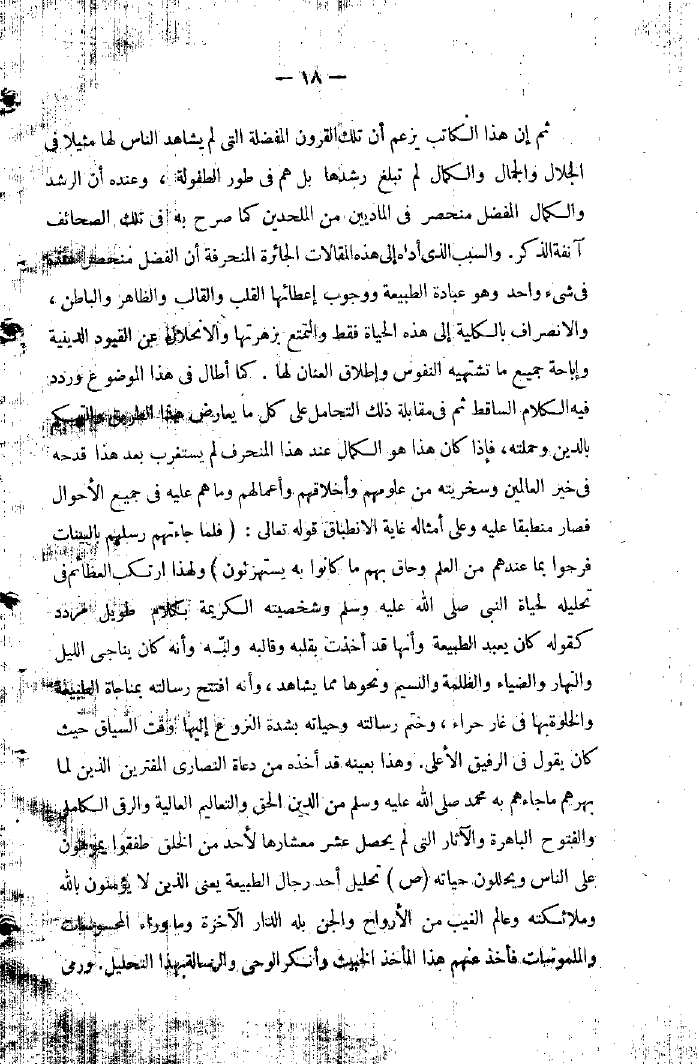 — ١٨ —
ثم إن هذا الكاتب يزعم أن تلك القرون المفضلة التى لم يشاهد الناس لها مثيلا فى
الجلال والجمال والكمال لم تبلغ رشدها بل هم فى طور الطفولة ، وعنده أن الرشد
والكمال المفضل منحصر فى الماديين من الملحدين كما صرح به فى تلك الصحائف
آنفة الذكر. والسبب الذى أداه إلى هذه المقالات الجائرة المنحرفة أن الفضل منحصر عنده
فى شىء واحد وهو عبادة الطبيعة ووجوب إعطائها القلب والقالب والظاهر والباطن ،
والانصراف بالكلية إلى هذه الحياة فقط والتمتع بزهرتها والانحلال عن القيود الدينية
وإباحة جميع ما تشتهيه النفوس وإطلاق العنان لها . كما أطال فى هذا الموضوع وردد
فيه الكلام الساقط ثم فى مقابلة ذلك التحامل على كل ما يعارض هذا الطريق والتهكم
بالدين وحملته، فإذا كان هذا هو الكمال عند هذا المنحرف لم يستغرب بعد هذا قدحه
فى خير العالمين وسخريته من علومهم وأخلاقهم وأعمالهم وما هم عليه فى جميع الأحوال
فصار منطبقا عليه وعلى أمثاله غاية الانطباق قوله تعالى : ( فلما جاءتهم رسلهم بالبينات
فرحوا بما عندهم من العلم وحاق بهم ما كانوا به يستهزئون ) ولهذا ارتكب العظائم فى
تحليله لحياة النبى صلى الله عليه وسلم وشخصيته الكريمة بكلام طويل مردد
كقوله كان يعبد الطبيعة وأنها قد أخذت بقلبه وقالبه ولبّه وأنه كان يناجى الليل
والنهار والضياء والظلمة والنسيم ونحوها مما يشاهد ، وأنه افتتح رسالته بمناجاة الطبيعة
والخلو بها فى غار حراء ، وختم رسالته وحياته بشدة النزوع إليها وقت السياق حيث
كان يقول فى الرفيق الأعلى. وهذا بعينه قد أخذه من دعاة النصارى المفترين الذين لما
بهرهم ما جاءهم به محمد صلى الله عليه وسلم من الدين الحق والتعاليم العالية والرقى الكامل
والفتوح الباهرة والآثار التى لم يحصل عشر معشارها لأحد من الخلق طفقوا يموهون
على الناس ويحللون حياته (ص) تحليل أحد رجال الطبيعة يعنى الذين لا يؤمنون بالله
وملائكته وعالم الغيب من الأرواح والجن بله الدار الآخرة وما وراء المحسوسات
والملموسات فأخذ عنهم هذا المأخذ الخبيث وأنكر الوحى والرسالة بهذا التحليل. ورمى